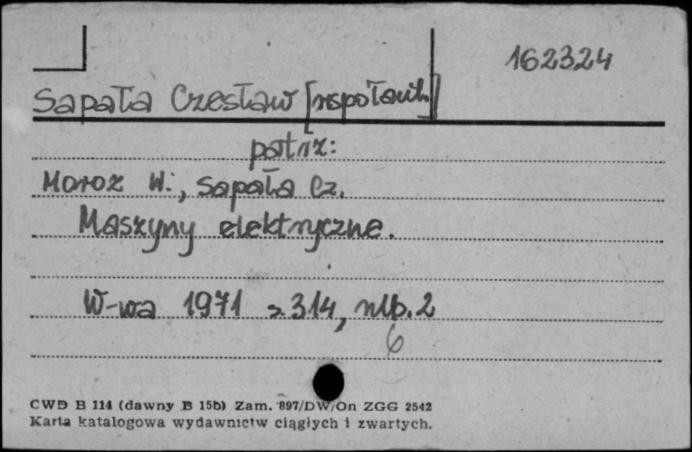 162324
Sapała Czesław [współaut.]
patrz:
Moroz W., Sapała Cz.
Maszyny elektryczne.
W-wa 1971 s. 314, nlb. 2
6
CWD B 114 (dawny B 15b) Zam. 897/DW/On ZGG 2542
Karta katalogowa wydawnictw ciągłych i zwartych.